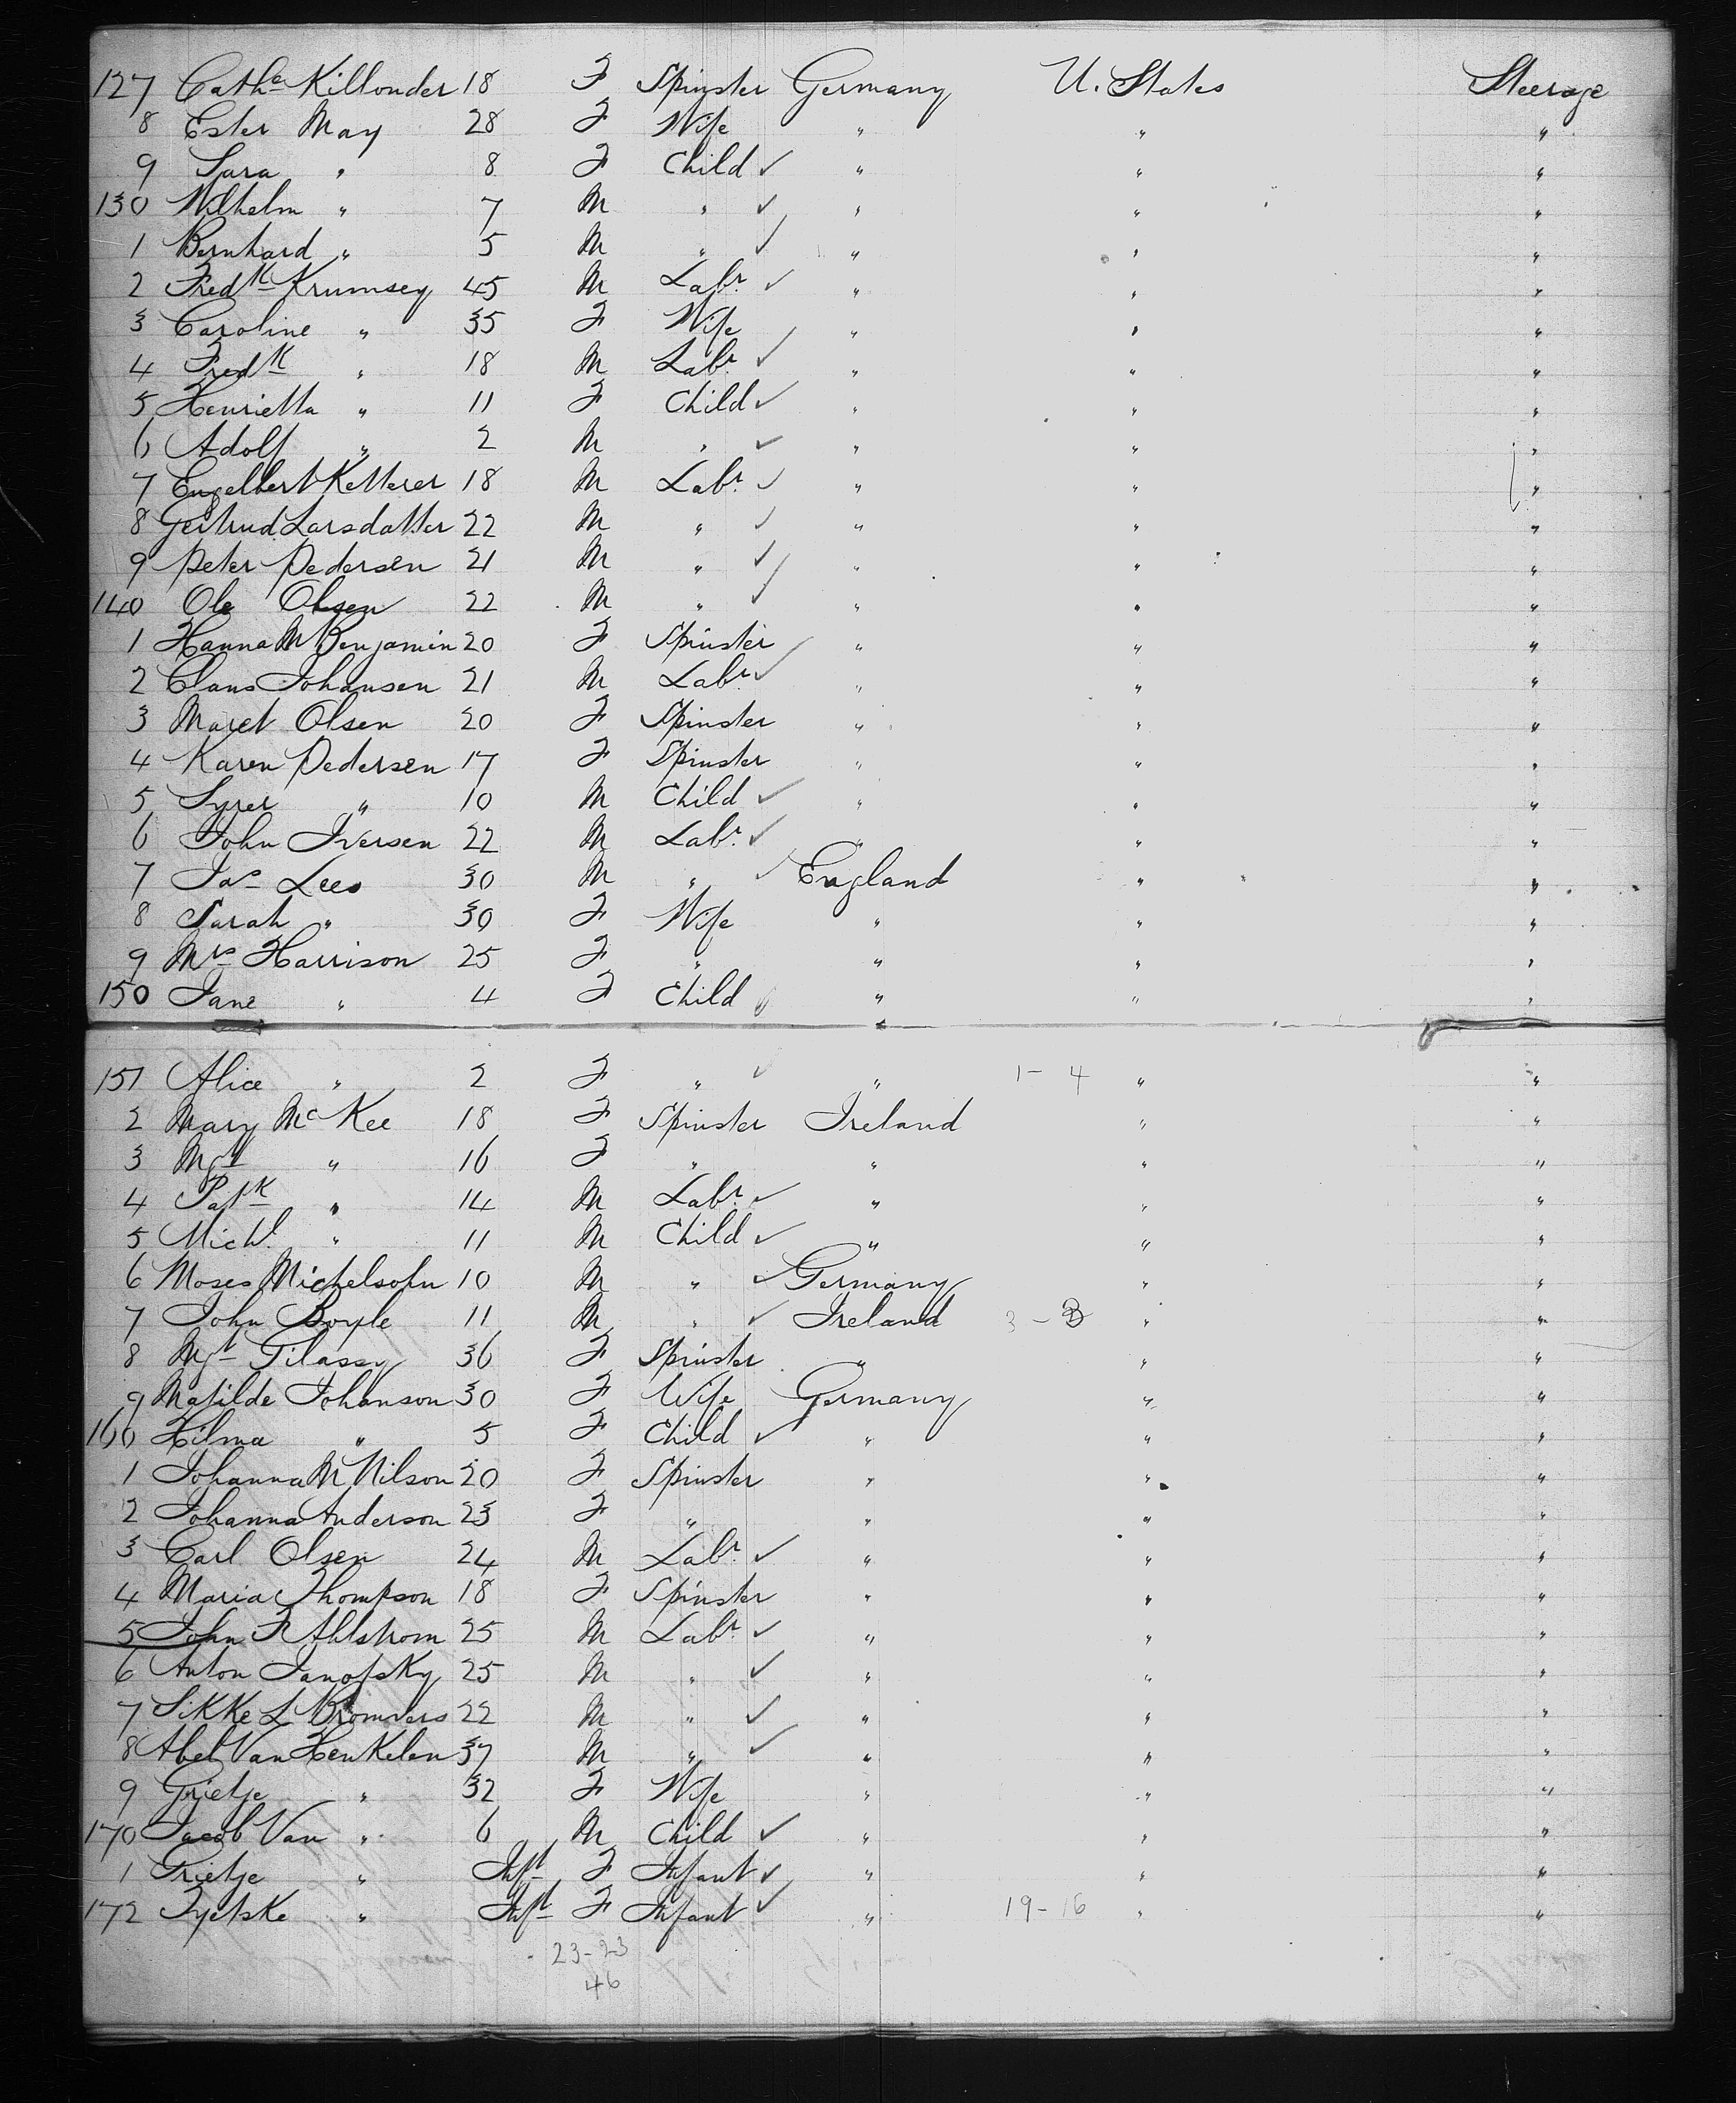 127 Cath^a Killonder 18 F Spinster Germany U. States Steerage
8 Ester May 28 F Wife " " "
9 Sara " 8 F Child ✓ " " "
130 Wilhelm " 7 M " ✓ " " "
1 Bernhard " 5 M " ✓ " " "
2 Fred^k Krumsey 45 M Lab^r ✓ " " "
3 Caroline " 35 F Wife " " "
4 Fred^k " 18 M Lab^r ✓ " " "
5 Henrietta " 11 F Child ✓ " " "
6 Adolf " 2 M " ✓ " " "
7 Engelbert Ketterer 18 M Lab^r ✓ " " "
8 Gertrud Larsdatter 22 M " ✓ " " "
9 Peter Pedersen 21 M " ✓ " " "
140 Ole Olsen 22 M " ✓ " " "
1 Hanna M Benjamin 20 F Spinster " " "
2 Claus Johansen 21 M Lab^r ✓ " " "
3 Maret Olsen 20 F Spinster " " "
4 Karen Pedersen 17 F Spinster " " "
5 Syrer " 10 M Child ✓ " " "
6 John Iversen 22 M Lab^r ✓ " " "
7 Ja^s Lees 30 M " ✓ England " "
8 Sarah " 30 F Wife " " "
9 M^rs Harrison 25 F " " " "
150 Jane " 4 F Child " " "
151 Alice " 2 F " ✓ " 1-4 " "
2 Mary M^c Kee 18 F Spinster Ireland " "
3 Mg^t " 16 F " " " "
4 Pat^k " 14 M Lab^r ✓ " " "
5 Mich^l " 11 M Child ✓ " " "
6 Moses Michelsohn 10 M " ✓ Germany " "
7 John Boyle 11 M " ✓ Ireland 3-3 " "
8 Mg^t Gilassy 36 F Spinster " " "
9 Matilde Johanson 30 F Wife Germany " "
160 Hilma " 5 F Child ✓ " " "
1 Johanna M Nilson 20 F Spinster " " "
2 Johanna Anderson 23 F " " " "
3 Carl Olsen 24 M Lab^r ✓ " " "
4 Maria Thompson 18 F Spinster " " "
5 John F Ahlstrom 25 M Lab^r ✓ " " "
6 Anton Janofsky 25 M " ✓ " " "
7 Sikke L 22 M " ✓ " " "
8 Abel Van Henkelen 37 M " ✓ " " "
9 Grietje " 32 F Wife " " "
170 Jacob Van " 6 M Child ✓ " " "
1 Grietje " Inf^t F Infant ✓ " " "
172 Tyetske " Inf^t F Infant ✓ " 19-16 " "
23-23
46